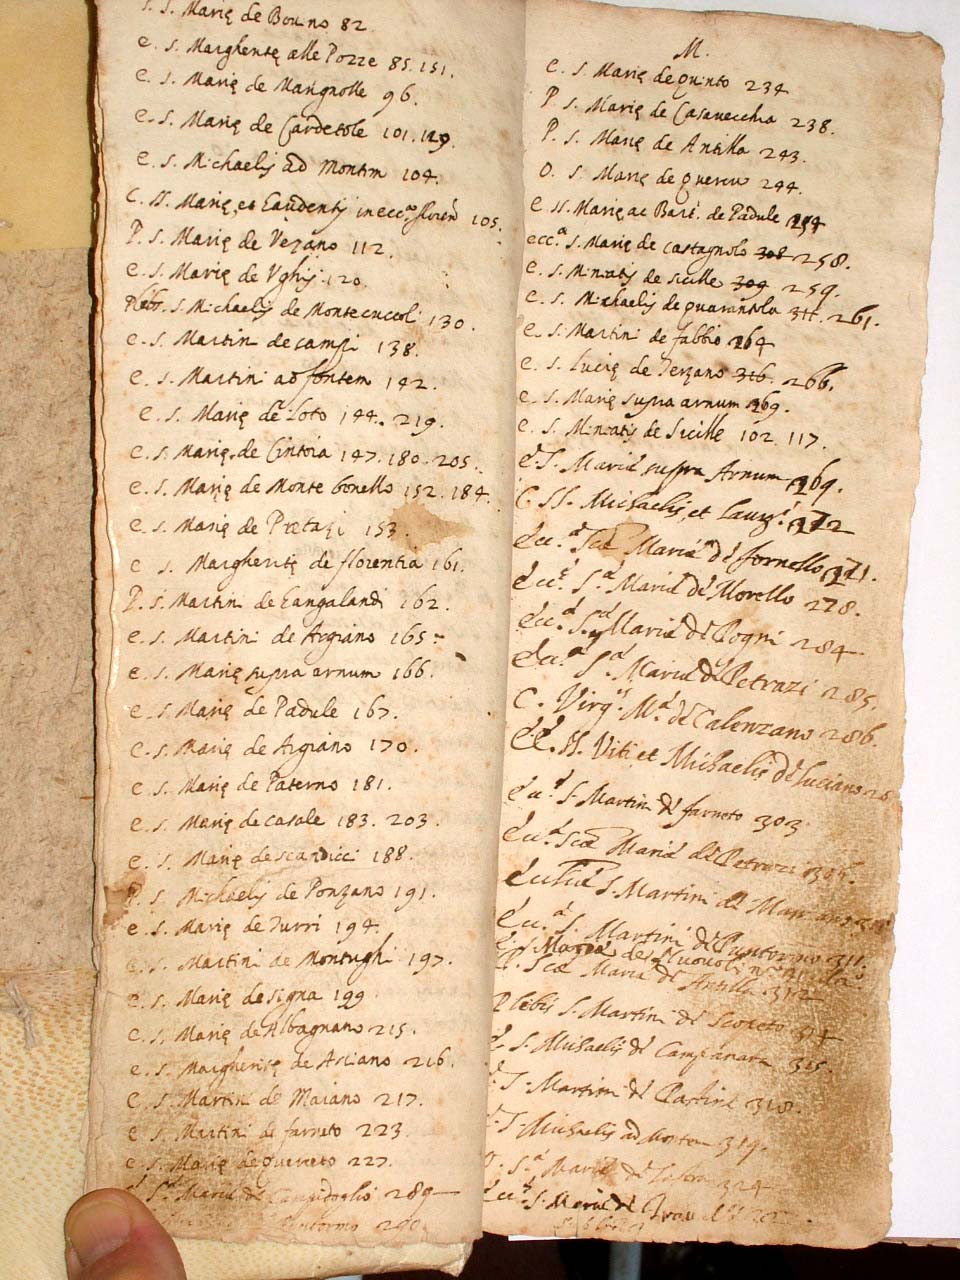 S. S. Marię de Bouno 82.
e. S. Margheritę alle Pozze 85. 151.
e. S. Marię de Marignolle 96.
e. S. Marię de Cardetole 101. 129.
e. S. Michaelis ad Montem 104.
C. SS. Marię, et Gaudentij in ecc.ª floren 105.
P. S. Marię de Vezano 112.
e. S. Marię de Vghi 120.
Plebs. S. Michaelis de Montecuccoli 130.
e. S. Martini de campi 138.
e. S. Martini ad fontem 142.
e. S. Marię de Loto 144. 219.
e. S. Marię de Cintoia 147. 180. 205.
e. S. Marię de Monte bonello 152. 184.
e. S. Marię de 153
e S. Margheritę de florentia 161.
P. S. Martini de Gangalandi 162.
e. S. Martini de Argiano 165.
e. S. Marię supra arnum 166.
e. S. Marię de Padule 167.
e. S. Marię de Argiano 170.
e. S. Marię de Paterno 181.
e. S. Marię de casale 183. 203.
e. S. Marię de scandicci 188.
P. S. Michaelis de Ponzano 191.
e. S. Marię de Turri 194.
e. S. Martini de Montughi 197.
e. S. Marię de signa 199
e. S. Marię de Albagnano 215.
e. S. Margheritę de Asciano 216.
e. S. Martini de Maiano 217.
e. S. Martini de farneto 223
e. S. Marię de querceto 227.
S. Mariæ de Campidoglio 289
290
M.
e. S. Marię de quinto 234
P S. Marię de Casavecchia 238.
P. S. Marię de Antilla 243.
O. S. Marię de quercu 244.
e SS. Marię ac Bart. de Padule 254
ecc.ª S. Marię de castagnolo 308 258.
e. S. Miniatis de sicille 309 259.
e. S. Michaelis de quarantola 311. 261.
e. S. Martini de fabbio 264
e. S. Lucię de Terzano 316. 266.
e. S. Marię supra arnum 269.
e. S. Miniatis de Sicille 102. 117.
S. Mariæ supra Arnum 269.
C. SS. Michaelis, et Laur. 272
Ecc.ª Scæ Mariæ de fornello 271.
Ecc.ª S.ª Mariæ de Morello 278.
Ecc.ª S. Mariæ de Pogni 284
Ecc.ª S.ª Mariæ de Petrazi 285.
C. Virg.s M.ª de Calenzano 286.
Ec. SS. Viti et Michaelis de Luciano
Ecc.ª S. Martini de farneto 303
Ecc.ª Scæ Mariæ de Petrozi
S. Martini de
Ecc.ª S. Martini de Puntormo 311.
S. Maria de
P. Scæ Mariæ de Antilla 312
Plebis S. Martini de Scoceto 314
S. Michaelis de Campanara 315.
S. Martini de 318.
S. Michaelis ad Montem 319.
S.ª Mariæ de 324
Ecc.ª S. Mariæ de